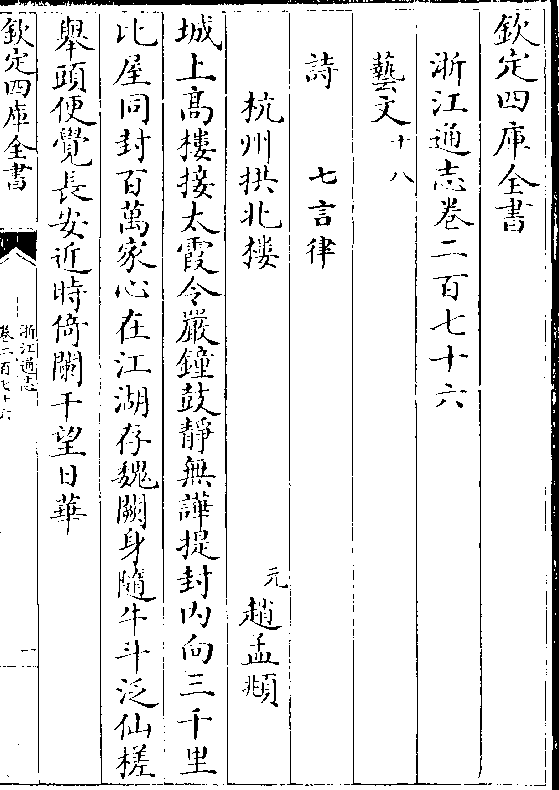 欽定四庫全書
浙江通志卷二百七十六
藝文十八
詩 七言律
杭州拱北樓 元趙孟頫
城上髙樓接太霞令嚴鐘鼓静無譁提封内向三千里
比屋同封百萬家心在江湖存魏闕身隨牛斗泛仙槎
舉頭便覺長安近時倚闌干望日華
欽定四庫全書
浙江通志
卷二百七十六
一